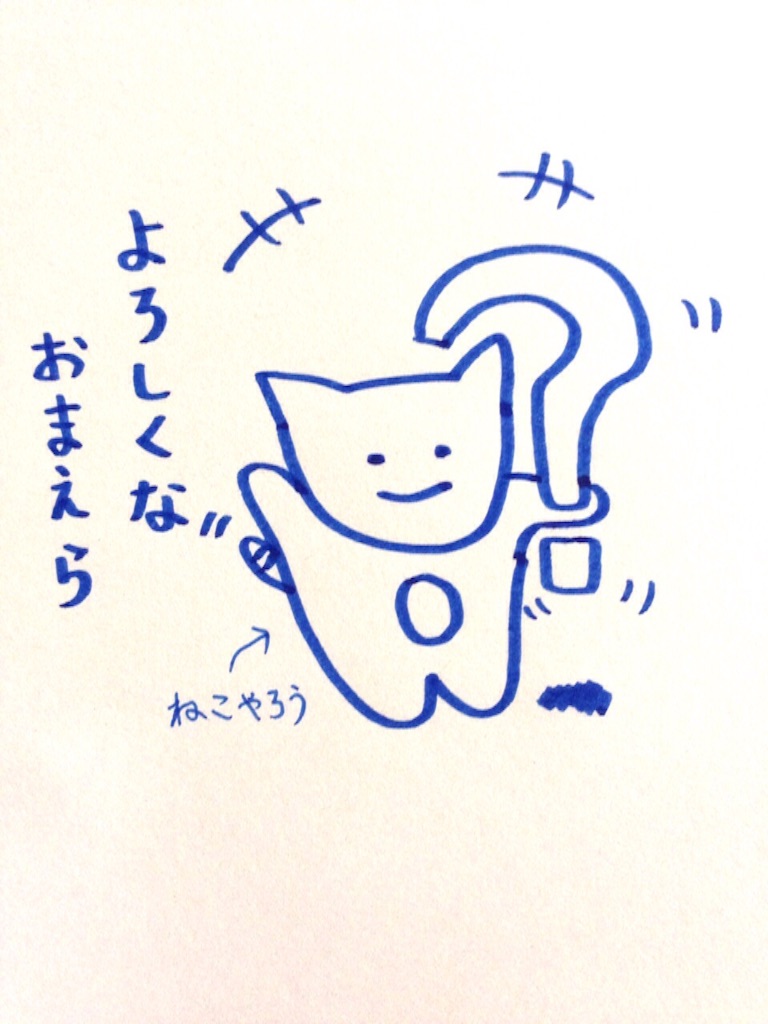 よろしくな
おまえら
ねこやろう